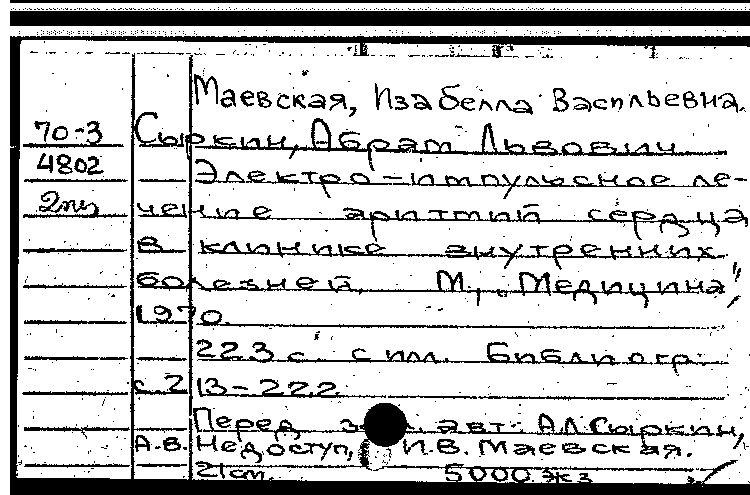 Маевская, Изабелла Васильевна.
70-3 Сыркин, Абрам Львович
4802 Электро-импульсное ле-
чение аритмий сердца
в клинике внутренних
болезней. М., „Медицина",
1970.
223 с. с илл. Библиогр:
с. 213-222
Перед авт: А.Л.Сыркин,
А.В. Недоступ, И.В. Маевская.
21см. 5000 экз